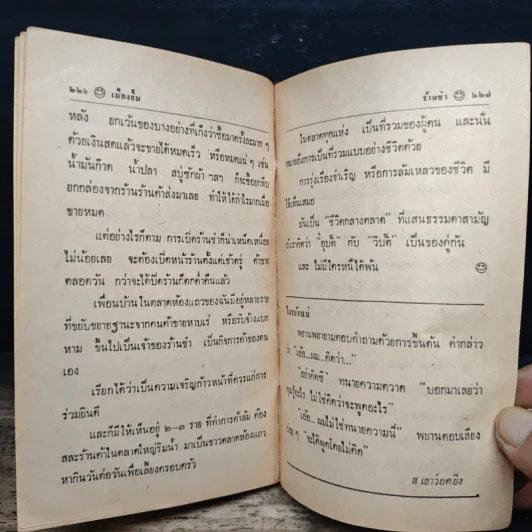 ๒๒๖ เมืองยิ้ม
หลัง ยกเว้นของบางอย่างที่เก็งว่าซื้อมาครั้งละมาก ๆ
ด้วยเงินสดแล้วจะขายได้หมดเร็ว หรือหมดแน่ ๆ เช่น
น้ำมันก๊าด น้ำปลา สบู่ซักผ้า ฯลฯ ก็จะซื้อยกหีบ
ยกกล่องจากร้านร้านค้าส่งมาเลย ทำให้ได้กำไรมากเมื่อ
ขายหมด
แต่อย่างไรก็ตาม การเปิดร้านชำก็น่าเหน็ดเหนื่อย
ไม่น้อยเลย จะต้องเปิดหน้าร้านตั้งแต่เช้าตรู่ ค้าขาย
ตลอดวัน กว่าจะได้ปิดร้านก็ดึกค่ำคืนแล้ว
เพื่อนบ้านในตลาดห้องแถวของฉันมีอยู่หลายราย
ที่ขยับขยายฐานะจากคนค้าขายหาบเร่ หรือรับจ้างแบก
หาม ขึ้นไปเป็นเจ้าของร้านชำ เป็นกิจการค้าของตน
เอง
เรียกได้ว่าเป็นความเจริญก้าวหน้าที่ควรแก่การ
ร่วมยินดี
และก็มีให้เห็นอยู่ ๒-๓ ราย ที่ทำการค้าล้ม ต้อง
สละร้านค้าในตลาดใหญ่ริมน้ำ มาเป็นชาวตลาดห้องแถว
หากินวันต่อวันเพื่อเลี้ยงครอบครัว
ร้านชำ ๒๒๗
ในตลาดทุกแห่ง เป็นที่รวมของผู้คน และนั่น
หมายถึงการเป็นที่รวมแบบอย่างชีวิตด้วย
การรุ่งเรืองจำเริญ หรือการล้มเหลวของชีวิต มี
ให้เห็นเสมอ
มันเป็น "ชีวิตกลางตลาด" ที่แสนธรรมดาสามัญ
ถ้าเราคิดว่า "อุบัติ" กับ "วิบัติ" เป็นของคู่กัน
และ ไม่มีใครหนีได้พ้น
ใครกันแน่
พยานพยายามตอบคำถามด้วยการขึ้นต้น คำกล่าว
ว่า "เอ้อ...ผม...คิดว่า..."
"อย่าคิดซิ" ทนายความตวาด "บอกมาเลยว่า
คุณรู้อะไร ไม่ใช่คิดว่าจะพูดอะไร"
"เอ้อ...ผมไม่ใช่ทนายความนี่" พยานตอบเสียง
"จะได้พูดโดยไม่คิด"
ส.เยาว์ยต์ยิง